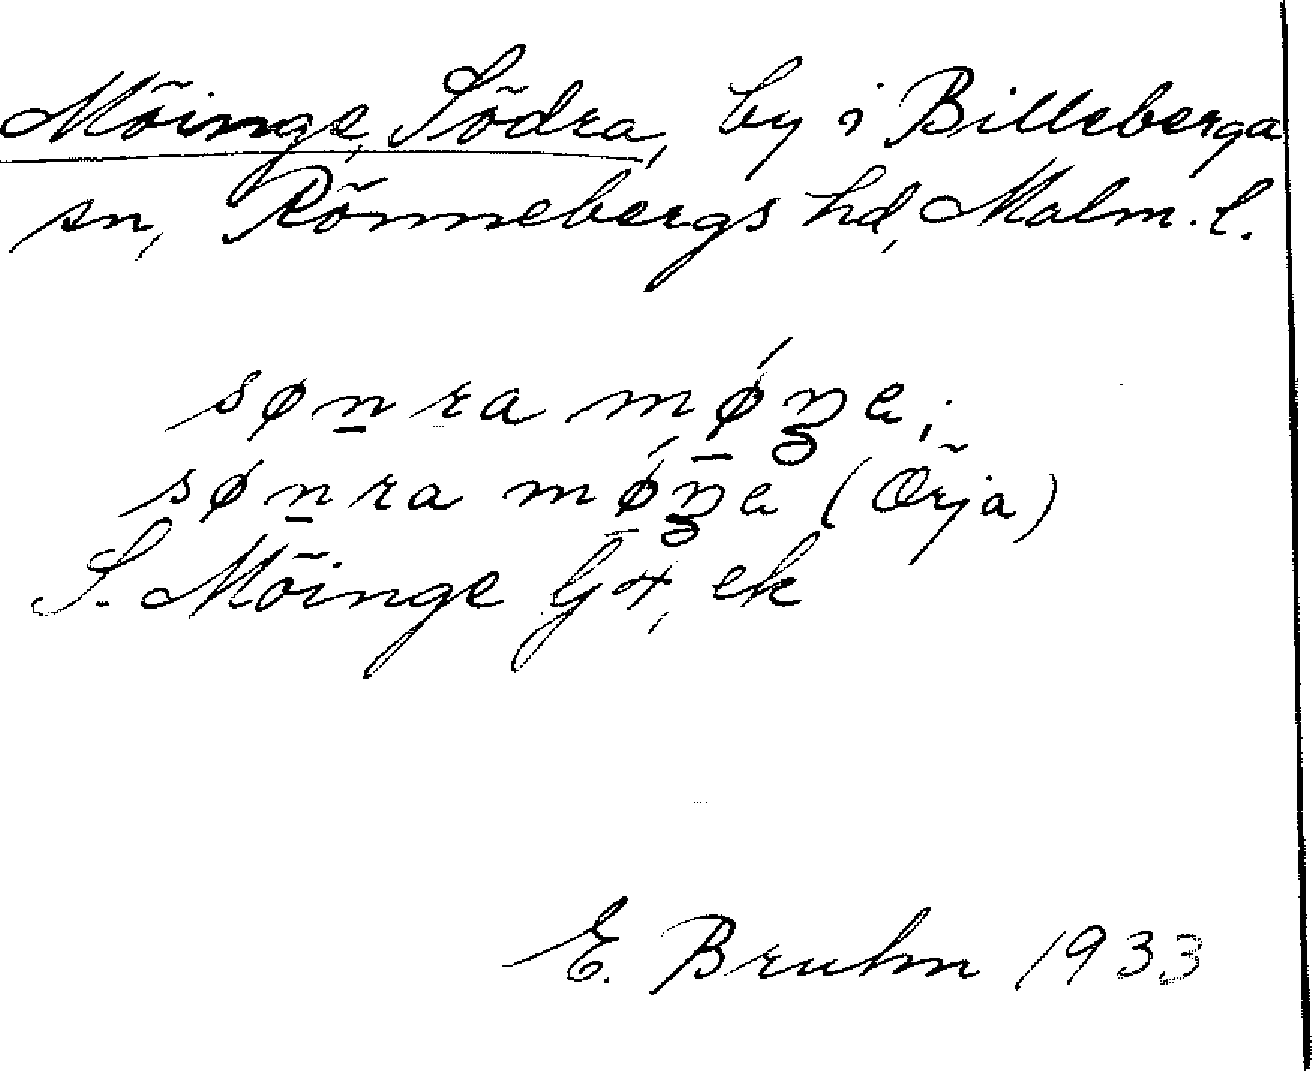 Möinge, Södra, by i Billeberga
sn, Rönnebergs hd, Malm. l.
søn̲ra mǿ̲ŋe;
søn̲ra mǿ̲ŋe (Örja)
S. Möinge G4, ek
E. Bruhn 1933